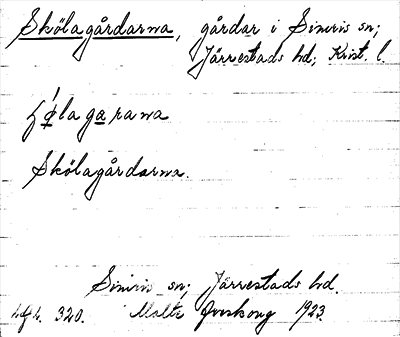 Skölagårdarna, gårdar i Simris sn;
Järrestads hd; Krist. l.
Skölagårdarna.
Simris sn; Järrestads hd.
320. Malte 1923